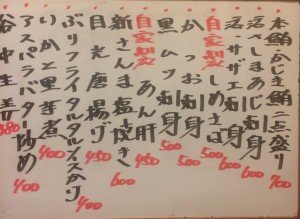 本鮪かじき鮪二点盛り 700
活〆しまあじ刺身 600
活・サザエ刺身 600
自家製しめさば 500
かつお刺身 500
黒ムツ刺身 500
自家製あん肝 450
新さんま塩焼き 600
目光唐揚げ 450
ぶりフライタルタルソースがけ 400
いかと里芋煮 400
アスパラバター炒め 400
谷中生姜 380